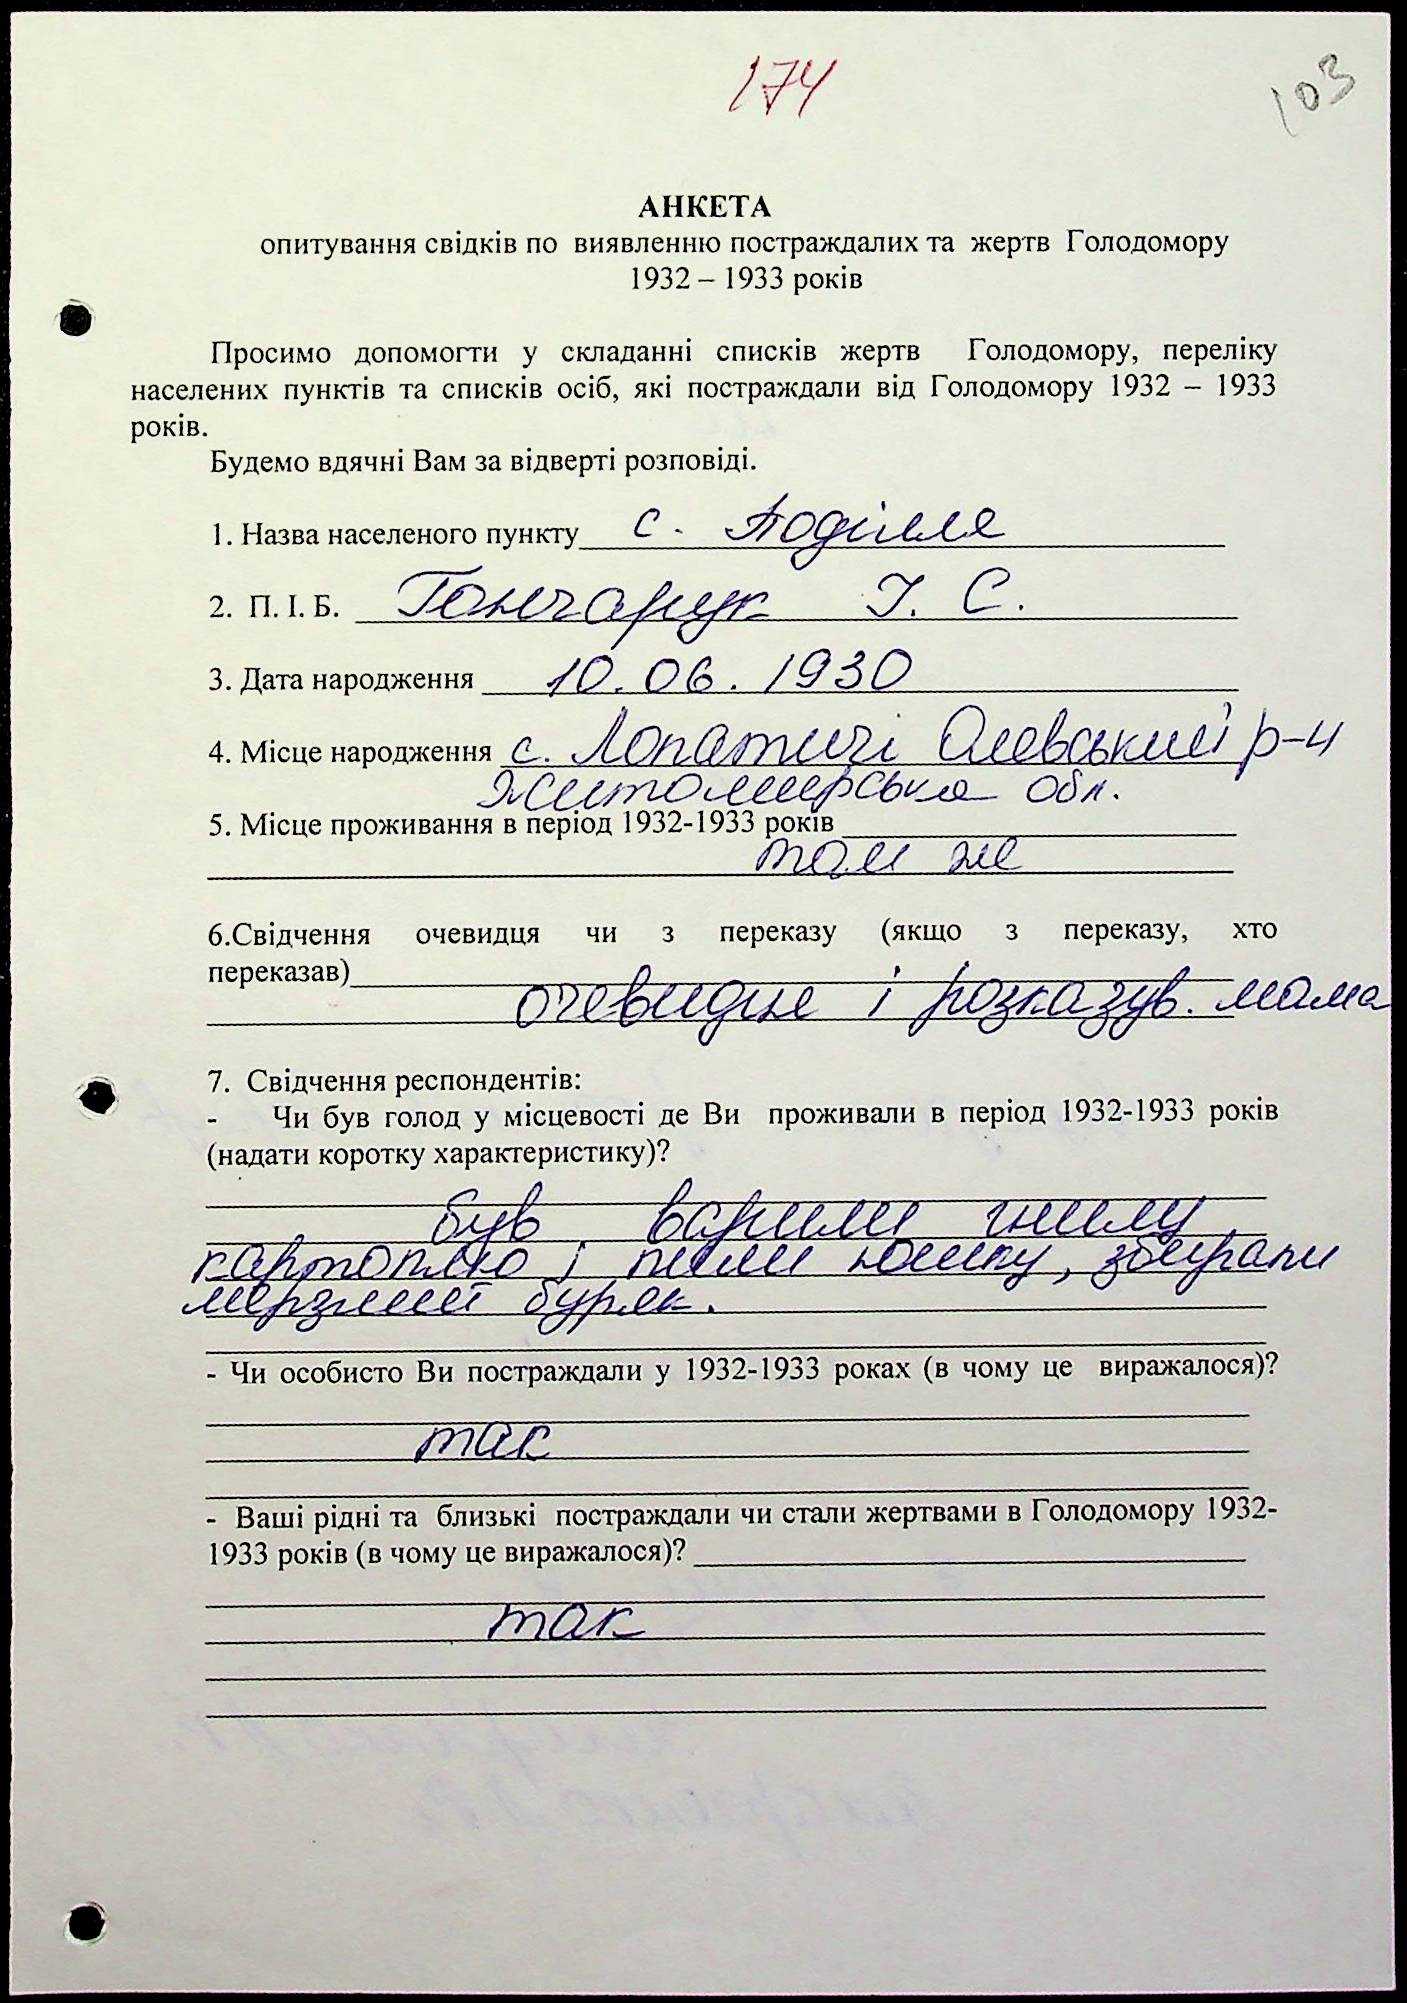 174
103
АНКЕТА
опитування свідків по виявленню постраждалих та жертв Голодомору
1932 – 1933 років
Просимо допомогти у складанні списків жертв Голодомору, переліку
населених пунктів та списків осіб, які постраждали від Голодомору 1932 – 1933
років.
Будемо вдячні Вам за відверті розповіді.
1. Назва населеного пункту с. Поділля
2. П. І. Б. Гончарук І. С.
3. Дата народження 10.06.1930
4. Місце народження с. Лопатичі Олевський р-н
Житомирська обл.
5. Місце проживання в період 1932-1933 років
там же
6.Свідчення очевидця чи з переказу (якщо з переказу, хто
переказав)
очевидце і розказув. мама
7. Свідчення респондентів:
- Чи був голод у місцевості де Ви проживали в період 1932-1933 років
(надати коротку характеристику)?
був, варили гнилу
картоплю і пили юшку, збирали
мерзлий буряк.
- Чи особисто Ви постраждали у 1932-1933 роках (в чому це виражалося)?
так
- Ваші рідні та близькі постраждали чи стали жертвами в Голодомору 1932-
1933 років (в чому це виражалося)?
так